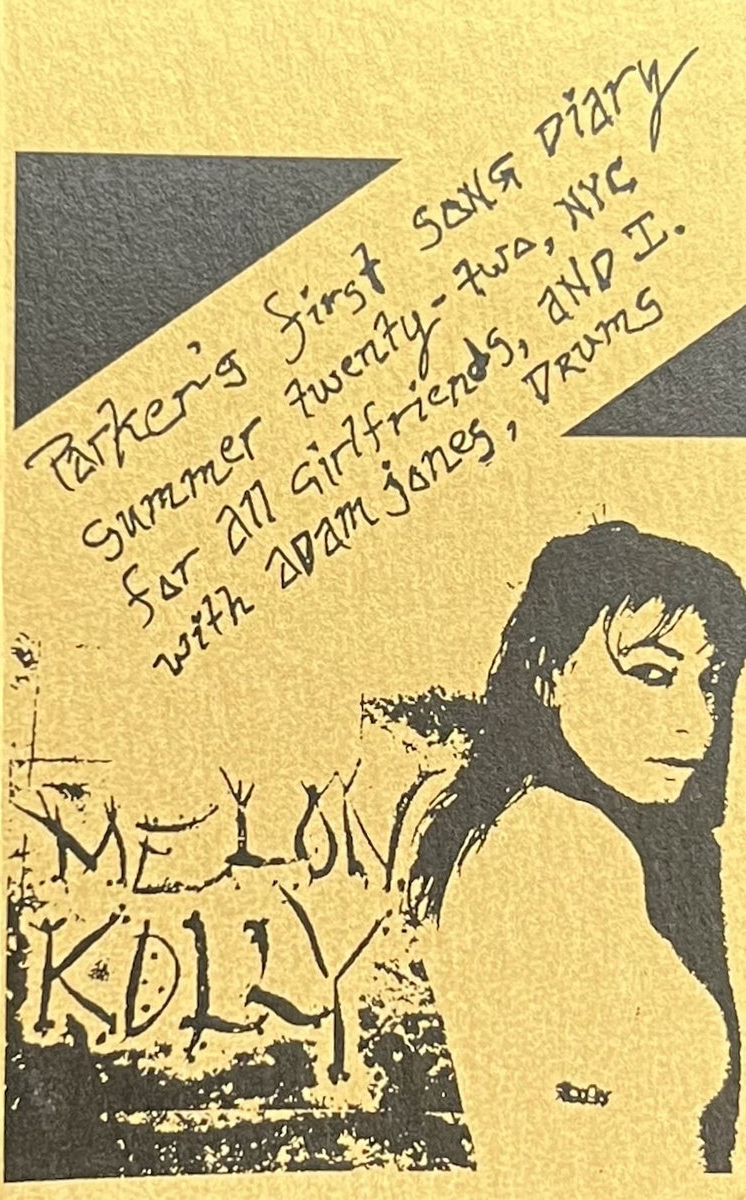 Parker's first SONG Diary
summer twenty-two, NYC
for all girlfriends, AND I.
with ADAM jones, DRUMS
MELON
KOLLY